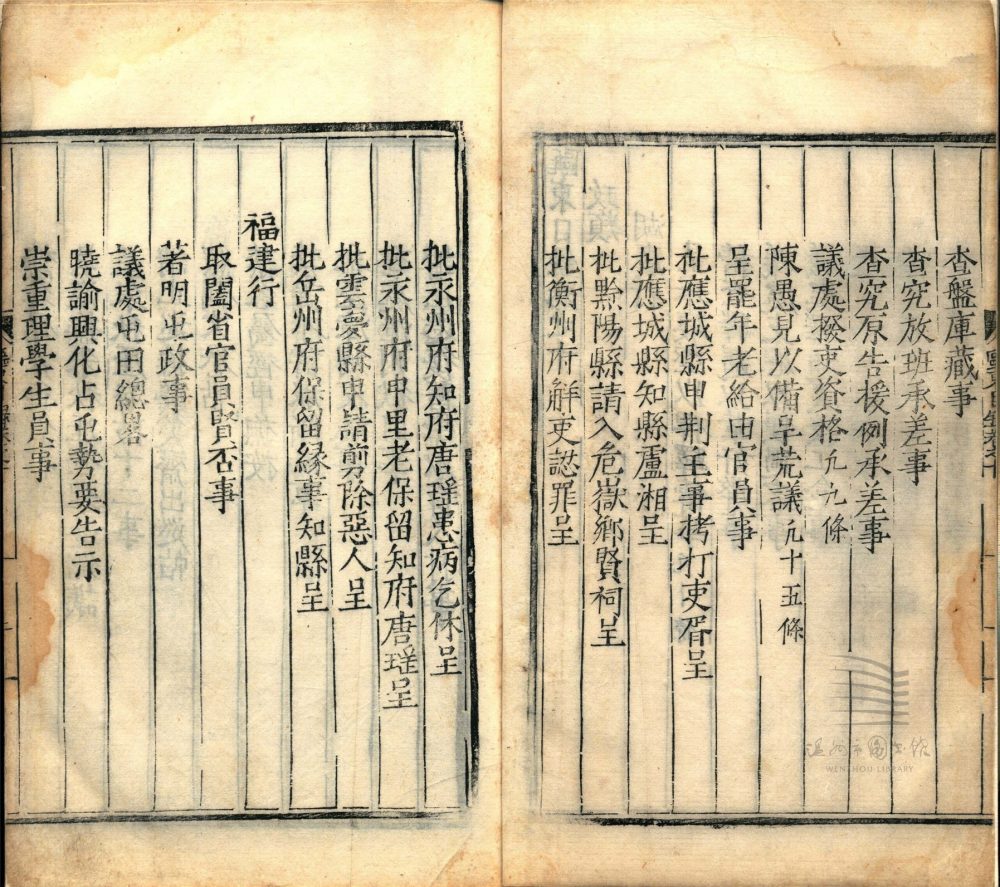 查盤庫藏事
查究放班承差事
查究原告援例承差事
議處撥吏資格凢九條
陳愚見以備采荒議凢十五條
呈罷年老給由官員事
批應城縣申荆主事拷打吏胥呈
批應城縣知縣盧湘呈
批黔陽縣請入危嶽鄉賢祠呈
批衡州府解吏認罪呈
批永州府知府唐瑶患病乞休呈
批永州府申里老保留知府唐瑶呈
批雲夢縣申請剪除惡人呈
批岳州府保留縁事知縣呈
福建行
取闔省官員賢否事
著明屯政事
議處屯田緫畧十二事
曉諭興化占屯勢要告示
崇重理學生員事
温州市图书馆
WENZHOU LIBRARY